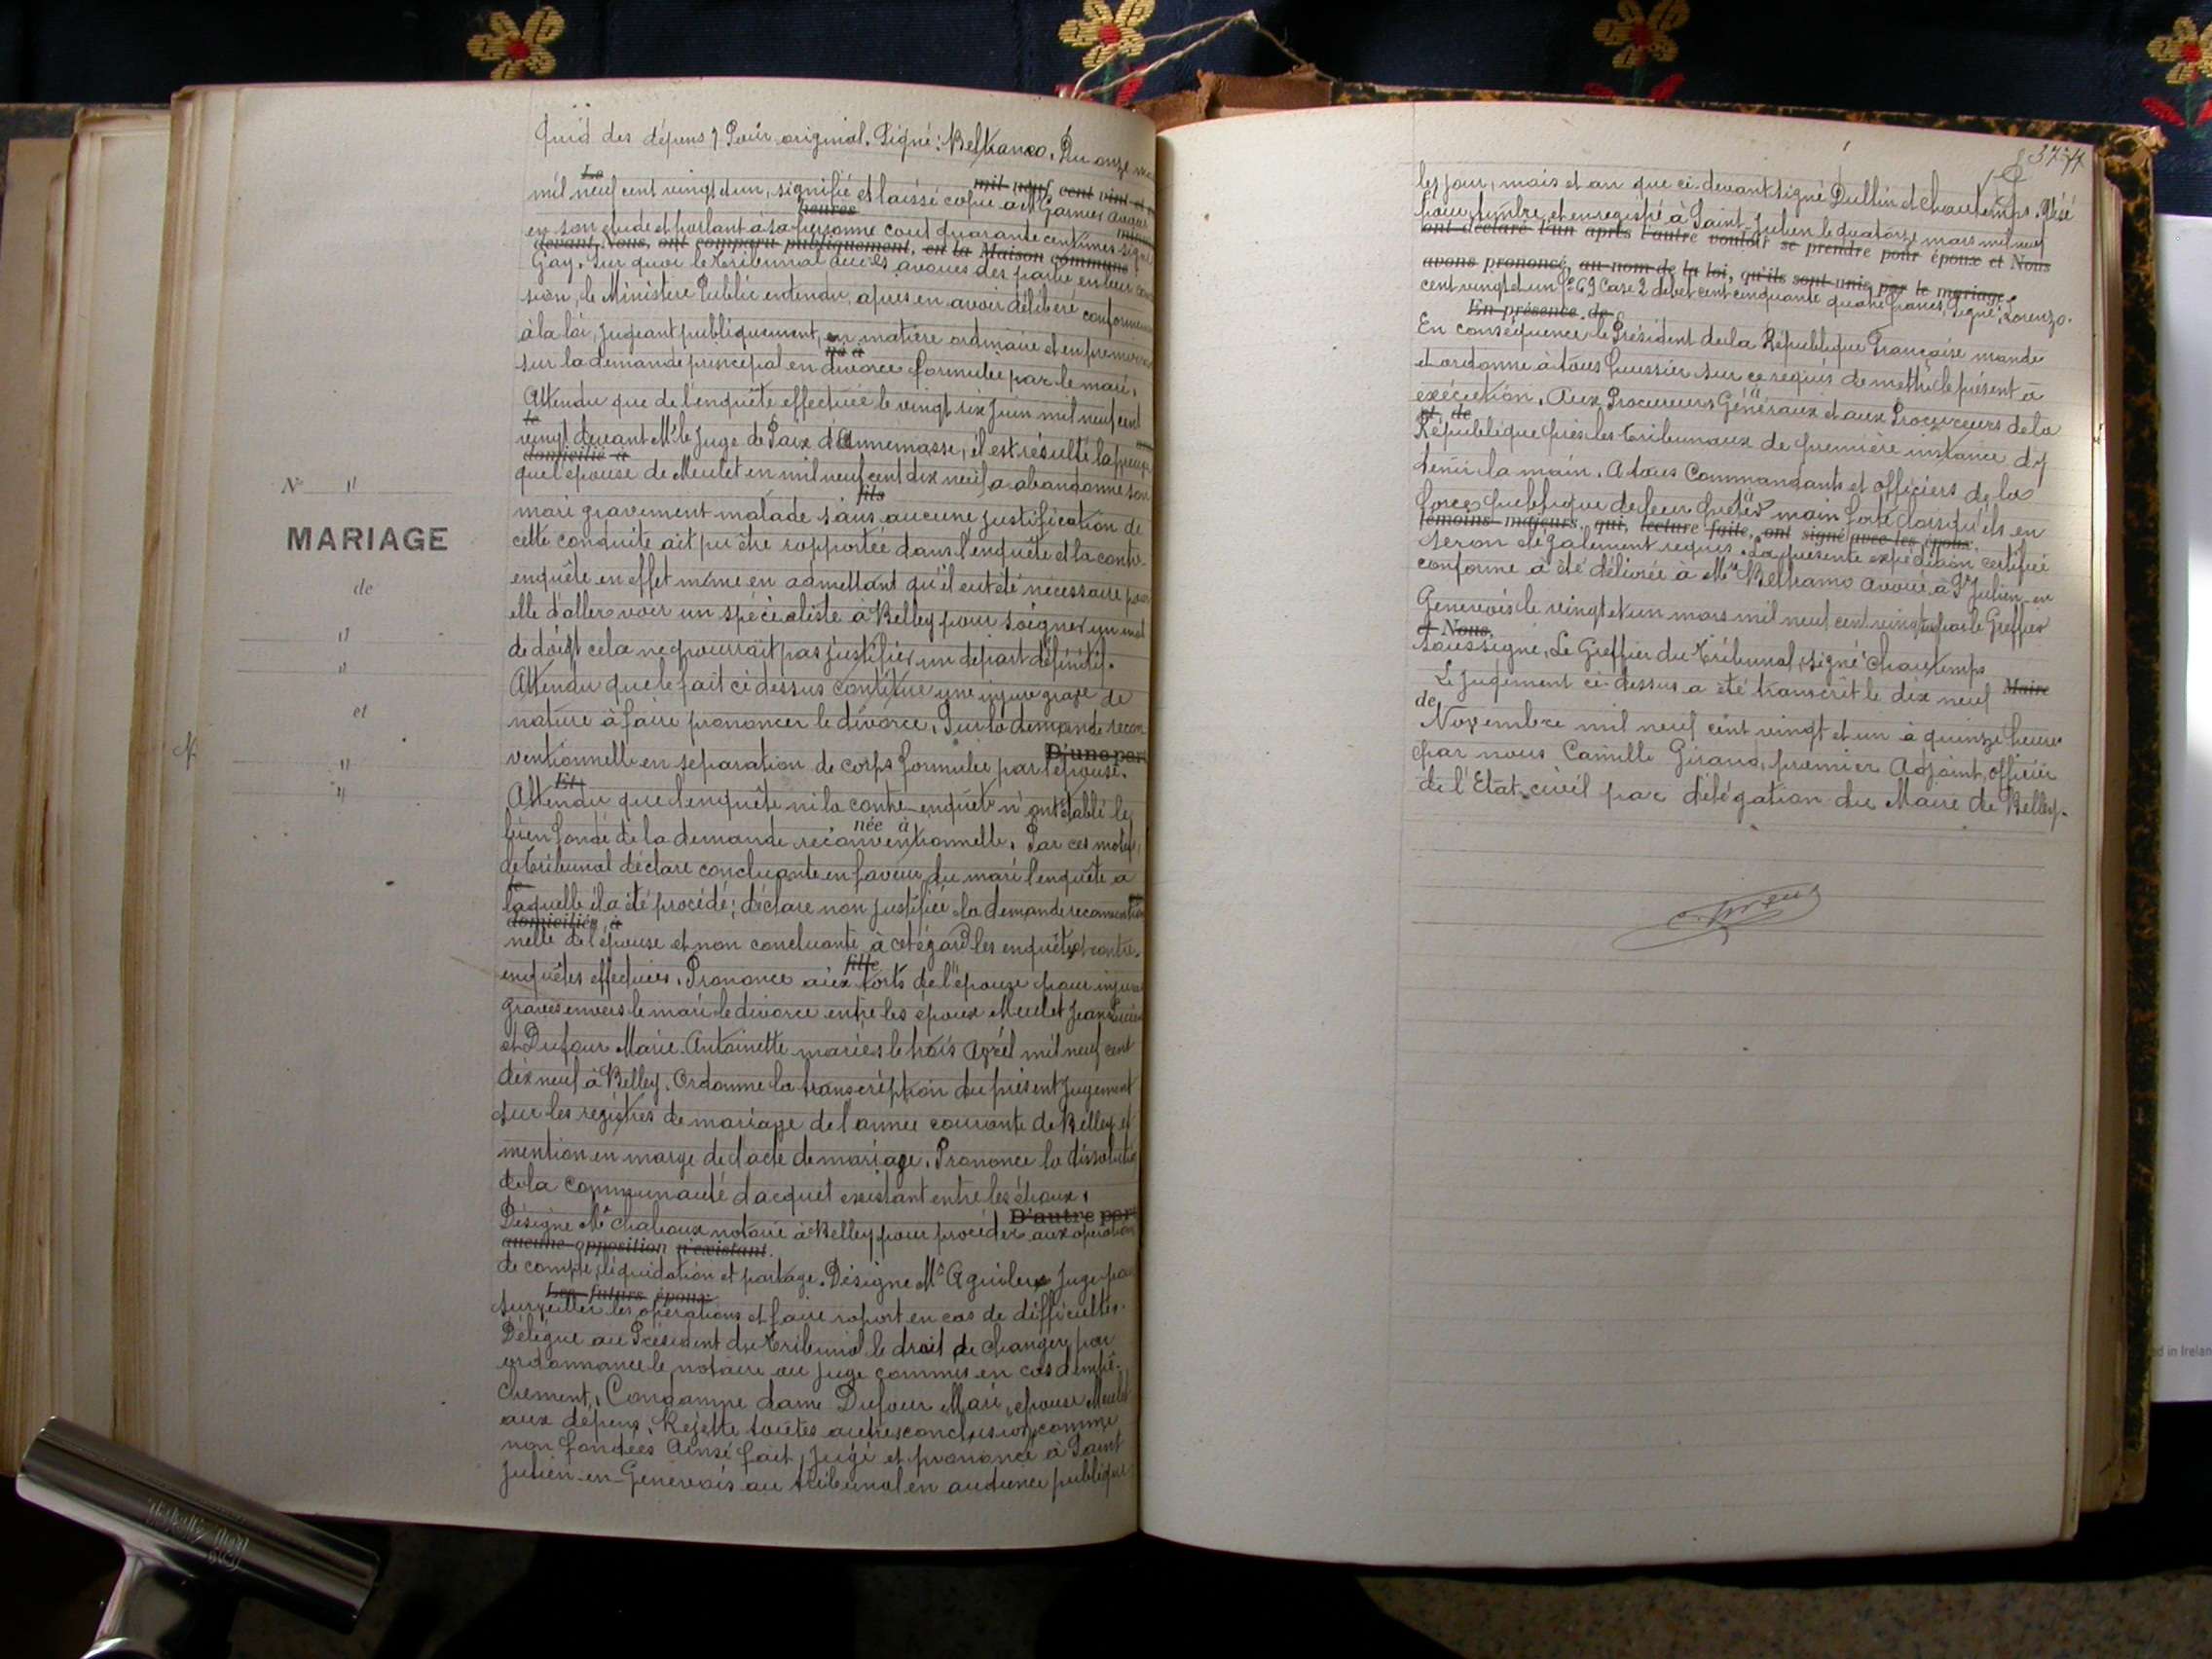 Quid des dépens ? Pour original. Signé: Beltramo. Du onze
Le
mil neuf cent vingt
mil neuf cent vingt et un, signifié et laissé copie à Me Garnier avoué
heures
en son étude et parlant à sa personne cout quarante centimes signé
devant Nous, ont comparu publiquement, en la Maison commune :
Gay. Sur quoi le tribunal ouï les avoués des parties en leur
sion, le Ministère Public entendu, apres en avoir délibéré conformément
à la loi, jugeant publiquement, en matière ordinaire et en premier
né à
sur la demande principal en divorce formulée par le mari,
Attendu que de l'enquête effectuée le vingt six Juin mil neuf cent
le
vingt devant Mr le Juge de Paix d'Annemasse, il est résulté la preuve
domicilié à
que l'épouse de Meulet en mil neuf cent dix neuf a abandonné son
fils
mari gravement malade sans aucune justification de
cette conduite ait pu être rapportée dans l'enquête et la contre
enquête en effet même en admettant qu'il eut été nécessaire pour
elle d'aller voir un spécialiste à Belley pour soigner un mal
de doigt cela ne pourrait pas justifier un départ définitif.
Attendu que le fait ci dessus contitue une injure grave de
nature à faire prononcer le divorce, Sur la demande recon
D'une part
ventionnelle en séparation de corps formulée par l'épouse.
Et
Attendu que l'enquête ni la contre-enquête n'ont établi le
née à
bien fondé de la demande reconventionnelle. Par ces motifs,
le tribunal déclare concluante en faveur du mari l'enquête a
le
laquelle il a été procédé; déclare non justifiée la demande reconvention
domiciliée à
nelle de l'épouse et non concluante à cet égard les enquêtes et contre-
fille
enquêtes effectuées. Prononce aux torts de l'épouse pour injures
graves envers le mari le divorce entre les epoux Meulet Jean Lucien
et Dufour Marie Antoinette mariés le trois Avril mil neuf cent
dix neuf à Belley. Ordonne la transcription du présent jugement
sur les registres de mariage de l'année courante de Belley et
mention en marge de l'acte de mariage. Prononce la dissolution
de la communauté d'acquet existant entre les époux.
D'autre part
Désigne Me Chaboux notaire à Belley pour procéder aux opérations
aucune opposition n'existant.
de compte, liquidation et partage. Désigne Mr Aguileux Juge pour
Les futurs époux
surveiller les opérations et faire raport en cas de difficultés.
Délègue au Président du tribunal le droit de changer par
ordonnance le notaire ou juge commis en cas d'empê-
chement, Condamne dame Dufour Marie, épouse Meulet
aux dépens. Rejette toutes autres conclusions comme
non fondées Ainsi fait, jugé et prononcé à Saint
Julien-en-Genevois au tribunal en audience publique
N° "
MARIAGE
de
"
"
et
"
"
37
les jour, mois et an que ci-devant signé Dullin et Chautemps. Visé
pour timbre et enregistré à Saint-Julien le quatorze mars mil neuf
ont déclaré l'un après l'autre vouloir se prendre pour époux et Nous
avons prononcé, au nom de la loi, qu'ils sont unis par le mariage.
cent vingt et un F° 69 Case 2 debet cent cinquante quatre francs, Signé: Lorenzo.
En présence de
En conséquence le Président de la République Française mande
et ordonne à tous huissier sur ce requis de mettre le présent à
exécution. Aux Procureurs Généraux et aux Procureurs de la
et de
République près les tribunaux de première instance d'y
tenir la main. A tous Commandants et officiers de la
force publique de leur prêter main forte lorsqu'ils en
témoins majeurs, qui, lecture faite, ont signé avec les époux
seron également requis. La présente expédition certifiée
conforme a été délivrée à Me Beltramo avoué à St Julien-en
Genevois le vingt et un mars mil neuf cent vingt par le Greffier
et Nous,
soussigné, Le Greffier du tribunal, signé: Chautemps
Maire
Le jugement ci-dessus a été transcrit le dix neuf
de
Novembre mil neuf cent vingt et un à quinze heures
par nous Camille Giraud, premier Adjoint, officier
de l'Etat civil par délégation du Maire de Belley.